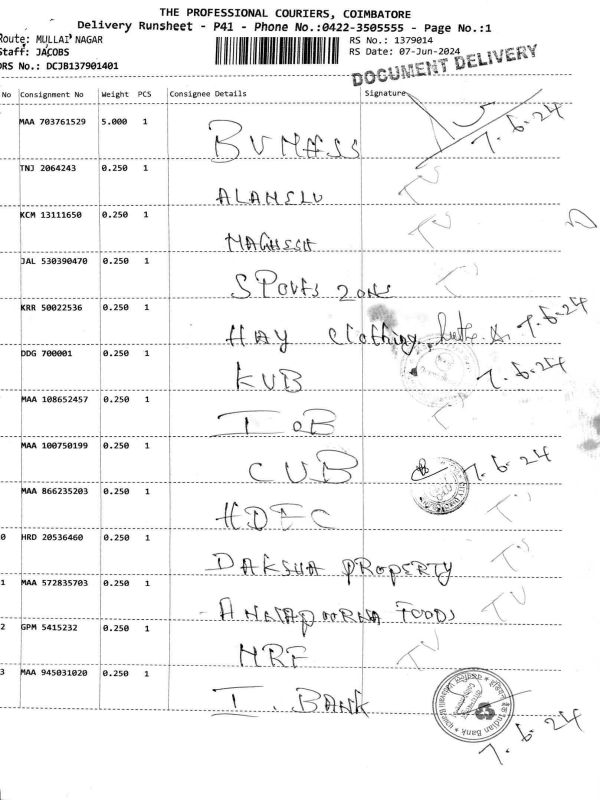 THE PROFESSIONAL COURIERS, COIMBATORE
Delivery Runsheet - P41 - Phone No.:0422-3505555 - Page No.:1
Route: MULLAI NAGAR
RS No.: 1379014
Staff: JACOBS
RS Date: 07-Jun-2024
DRS No.: DCJB137901401
DOCUMENT DELIVERY
No Consignment No Weight PCS Consignee Details Signature
MAA 703761529 5.000 1 BVMASS 7.6.24
TNJ 2064243 0.250 1
KCM 13111650 0.250 1
JAL 530390470 0.250 1 SPorts zone
KRR 50022536 0.250 1 HAY Clothing 7.6.24
DDG 700001 0.250 1 KVB 7.6.24
MAA 108652457 0.250 1 IOB
MAA 100750199 0.250 1 CUB 7.6.24
MAA 866235203 0.250 1 HDFC
0 HRD 20536460 0.250 1 DAKSHA PROPERTY
1 MAA 572835703 0.250 1 ANNAPOORNA FOODS
2 GPM 5415232 0.250 1 MRF
3 MAA 945031020 0.250 1 I. BANK
Indian Bank
7.6.24